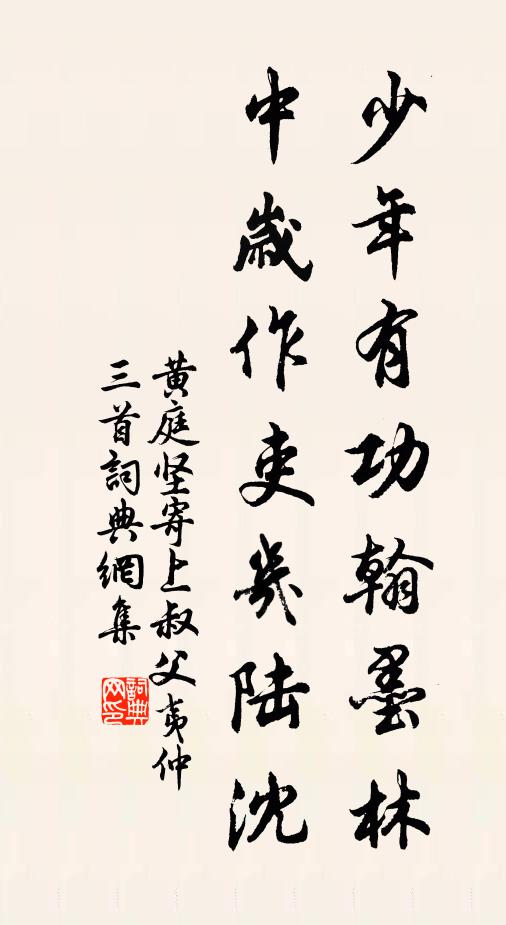 少年有功翰墨林
中歲作吏幾陆沈
黄庭坚寄上叔父夷仲
三首詞典網集
詞典网印